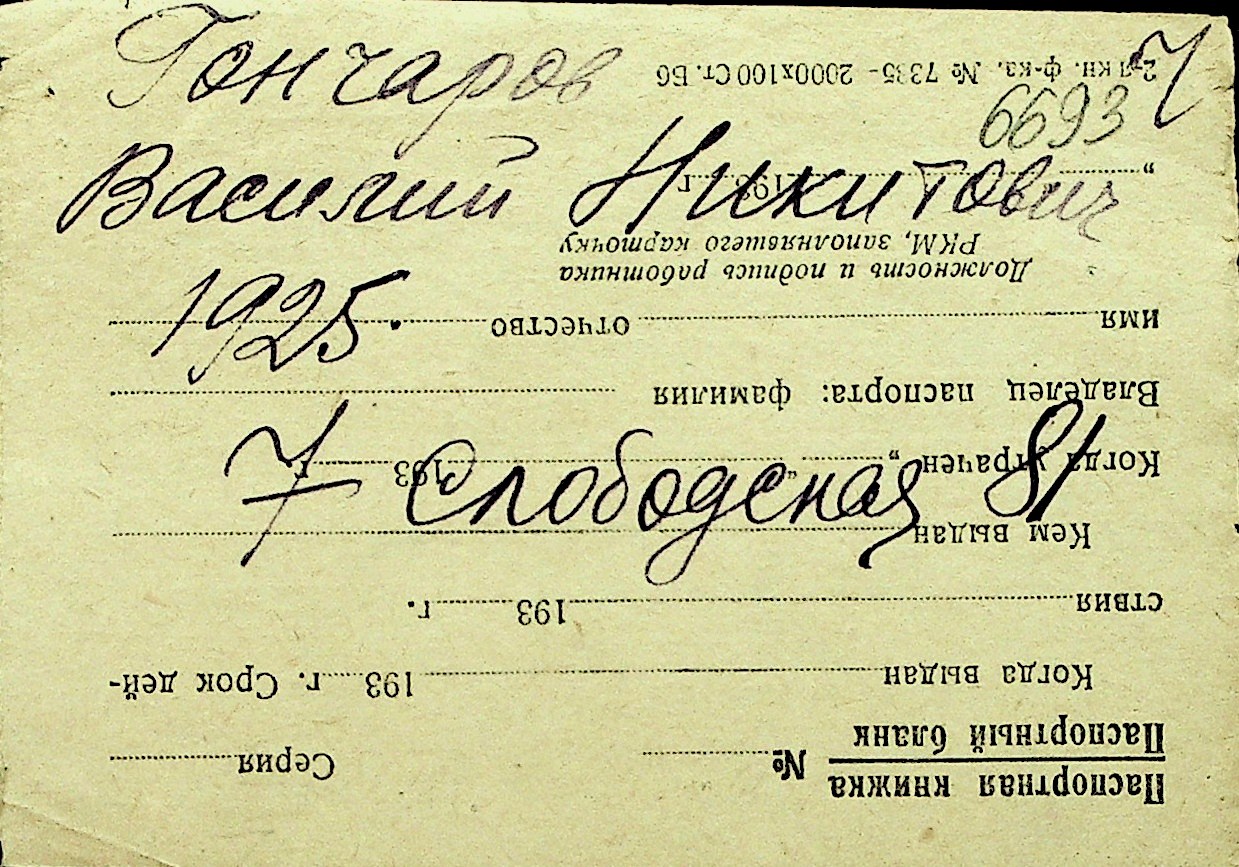 Гончаров
Василий Никитович
1925.
7 Слободская 81
7
6693
Паспортная книжка
Паспортный бланк
№ Серия
Когда выдан 193 г. Срок дей-
ствия 193 г.
Кем выдан
Когда утрачен „ “ 193 г.
Владелец паспорта: фамилия
имя отчество
Должность и подпись работника
РКМ, заполнявшего карточку
„ “ 193 г.
2-я кн. ф-ка. № 7335 - 2000х100 Ст. Б6